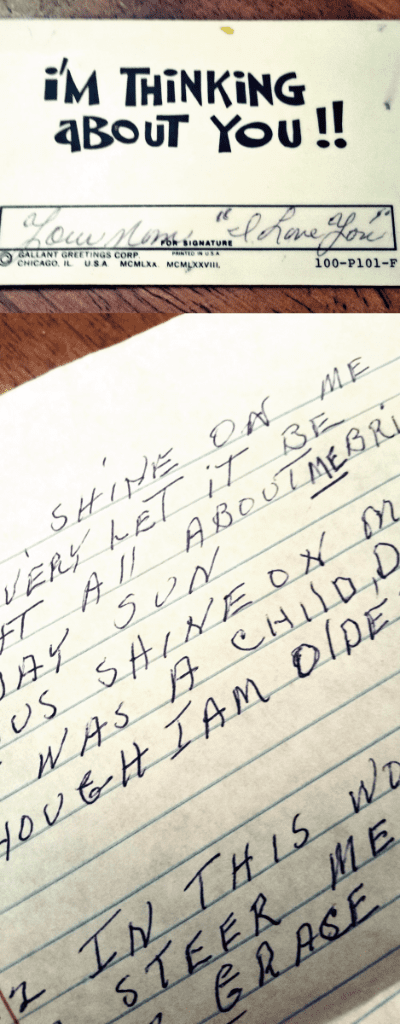 i'M THiNKiNG
aBOUT YOU !!
Your Mom, "I Love You"
FOR SIGNATURE
© GALLANT GREETINGS CORP. PRINTED IN U.S.A
CHICAGO, IL U.S.A. MCMLXX MCMLXXVIII, 100-P101-F
SHINE ON ME
VERY LET iT BE
FT All ABOUT ME BRI
AY SUN
US SHINE ON M
WAS A CHIlD, D
HOUGH I AM OlDE
2 IN THIS WO
STEER ME
GRASE